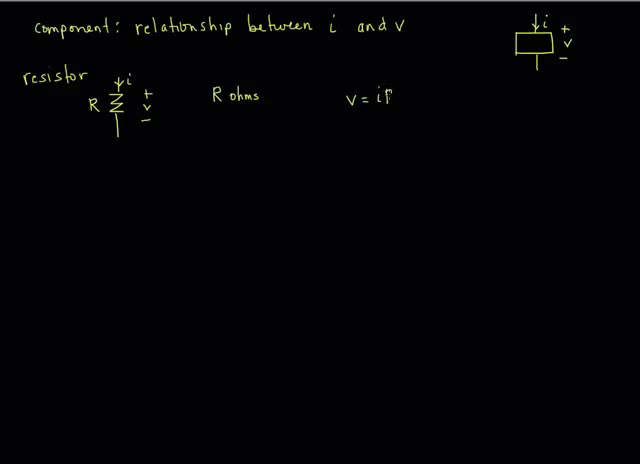 component: relationship between i and v
i
+
v
-
resistor
i
R
+
v
-
R ohms
v = i